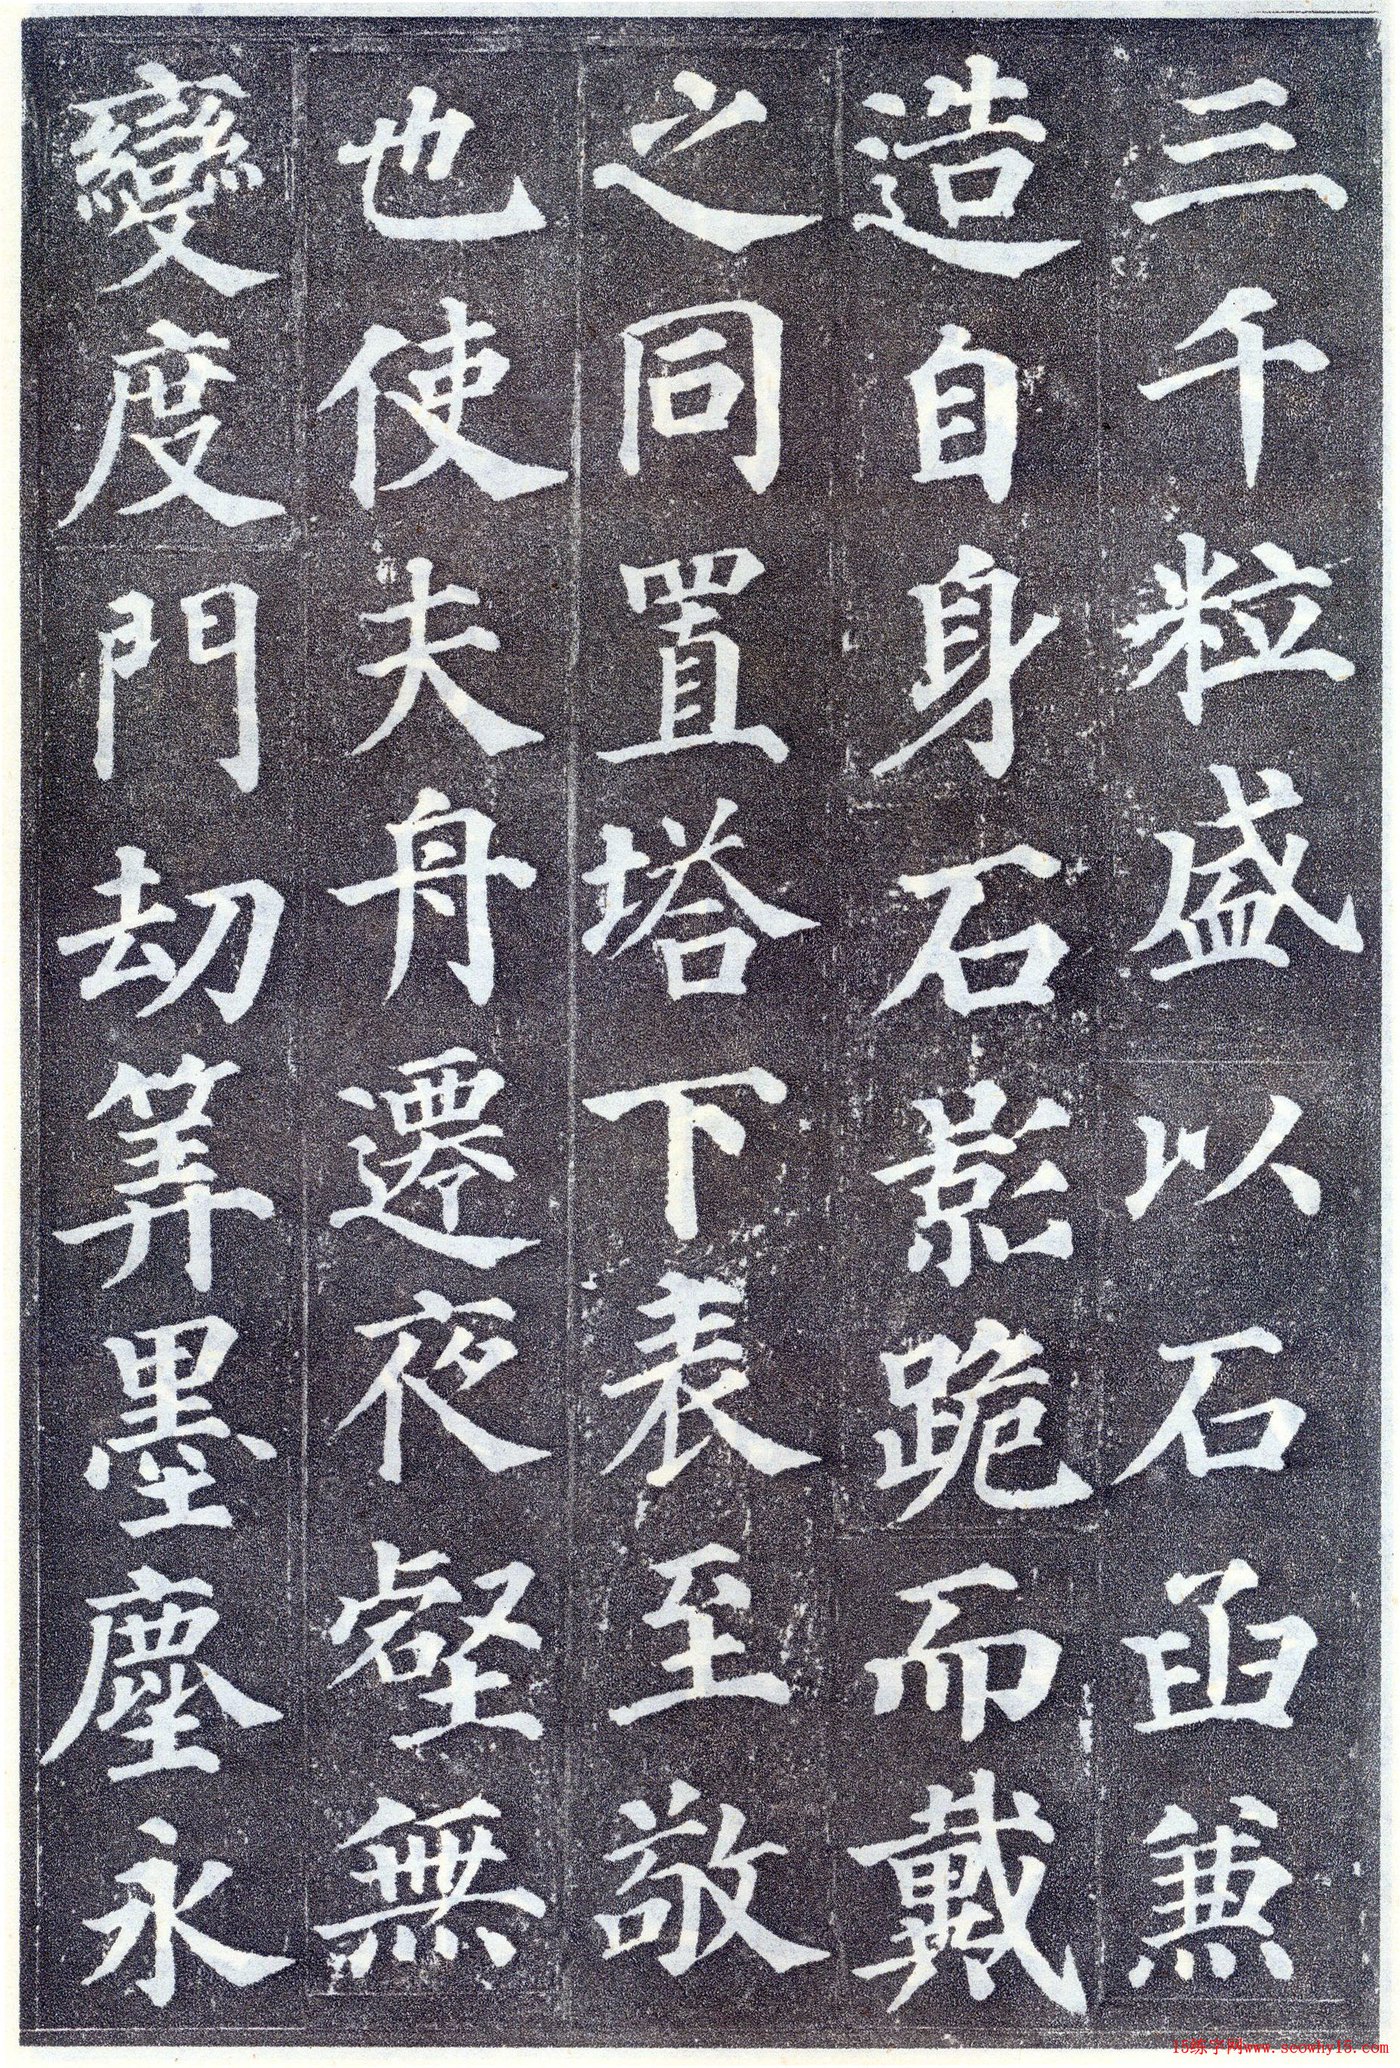 三千粒盛以石函兼
造自身石影跪而戴
之同置塔下表至敬
也使夫舟遷夜壑無
變度門劫筭墨塵永
15练字网www.scowhy15.com